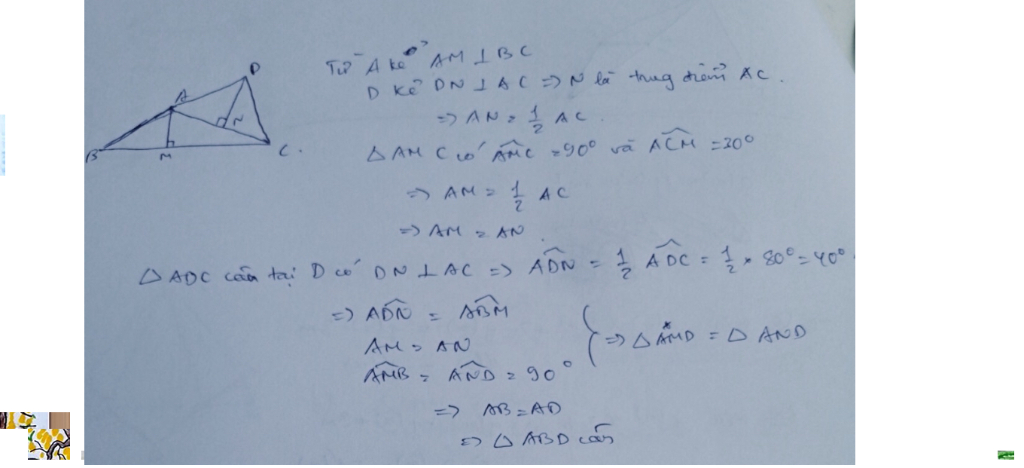 Từ A kẻ AM ⊥ BC
D kẻ DN ⊥ AC => N là trung điểm AC.
=> AN = 1/2 AC.
△ AMC có AMC = 90° và ACM = 30°
=> AM = 1/2 AC
=> AM = AN.
△ ADC cân tại D có DN ⊥ AC => ADN = 1/2 ADC = 1/2 × 80° = 40°.
=> ADN = ABM
AM = AN
AMB = AND = 90°
} => △ AMD = △ AND
=> AB = AD
=> △ ABD cân
A
D
N
B
M
C